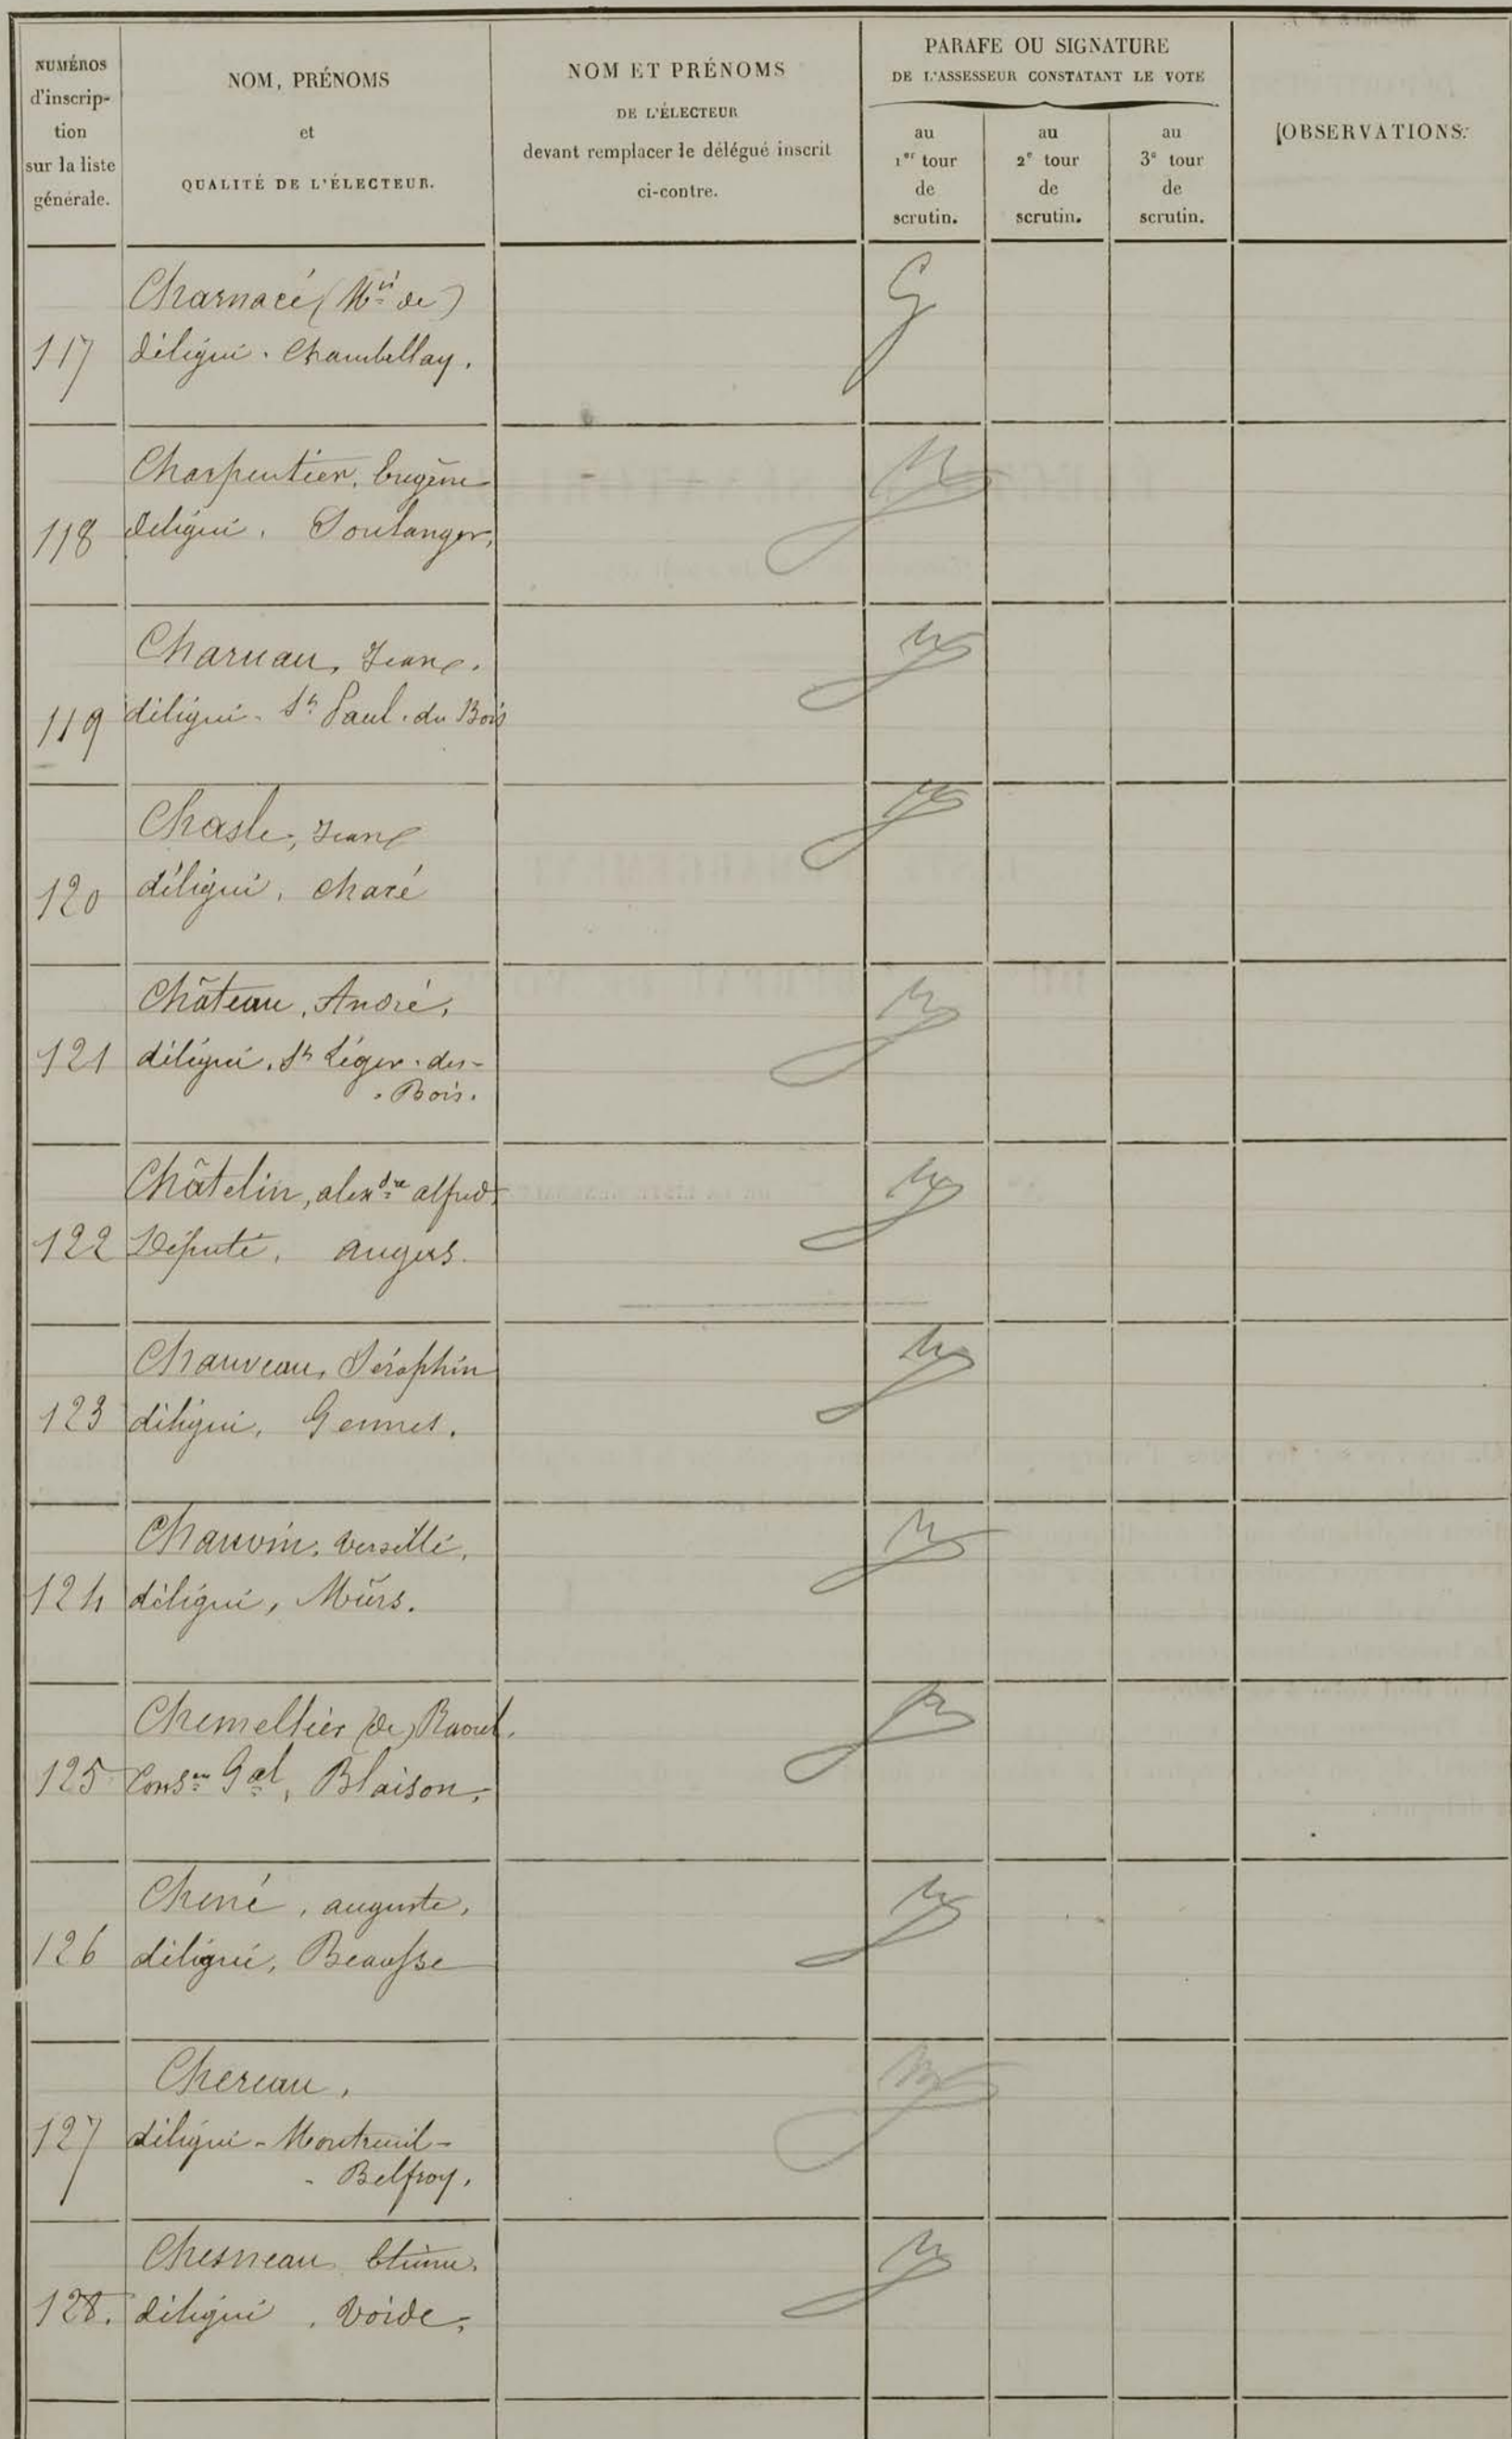 NUMÉROS
d'inscrip-
tion
sur la liste
générale.
NOM, PRÉNOMS
et
QUALITÉ DE L'ÉLECTEUR.
NOM ET PRÉNOMS
DE L'ÉLECTEUR
devant remplacer le délégué inscrit
ci-contre.
PARAFE OU SIGNATURE
DE L'ASSESSEUR CONSTATANT LE VOTE
au
1er tour
de
scrutin.
au
2e tour
de
scrutin.
au
3e tour
de
scrutin.
OBSERVATIONS.
Charnacé (Mis de)
117 délégué. Chambellay.
Charpentier, Eugène
118 délégué, Soulanger,
Charuau, Jean
119 délégué. St Paul. du Bois
Chasle, Jean
120 délégué, Chacé
Château, André,
121 délégué. St Léger. des-
. Bois.
Châtelin, alexdre alfred,
122 Député, angers.
Chauveau, Séraphin
123 délégué, Gennes.
Chauvin, Versillé,
124 délégué, Mûrs.
Chemellier (de) Raoul.
125 Conser Gal, Blaison,
Chené, auguste,
126 délégué, Beausse
Chereau,
127 délégué - Montreuil-
- Belfroy.
Chesneau Etienne,
128. délégué, Voide,